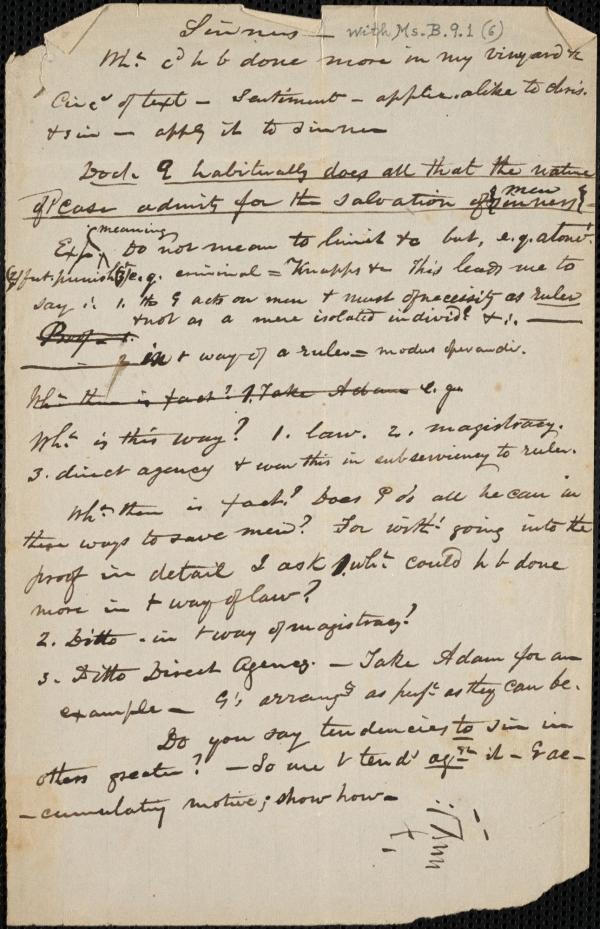 Sinners — with Ms. B. 9. 1 (6)
Wht. cd h b done more in my vinyard &c
Circs of text — Sentiment — applic. alike to chris.
& sin — apply it to sinners
Doct. G habitually does all that the nature
of case admits for the salvation of {sinners} men —
Exp. meaning Do not mean to limit &c but, e.g. atonet.
fut. punisht. e.g. criminal = Knapps &c This leads me to
say : 1. tht G acts on men & must of necessity as ruler
& not as a mere isolated individl. & :. —
Proof — 1.
2 in t way of a ruler = modus operandi.
Wht then is fact? 1. Take Adam e.g.
Wht. is this way? 1. law. 2. magistracy.
3. direct agency & even this in subserviency to ruler.
Wht then is fact? Does G do all he can in
these ways to save men? For witht. going into the
proof in detail I ask 1. wht. could h b done
more in t way of law?
2. Ditto. in t way of magistracy?
3. Ditto Direct Agency. — Take Adam for an
example — G's arrangd as pert as they can be.
Do you say tendencies to sin in
others greater? — So are t tends agst it — & ac-
-cumulating motive; show how —